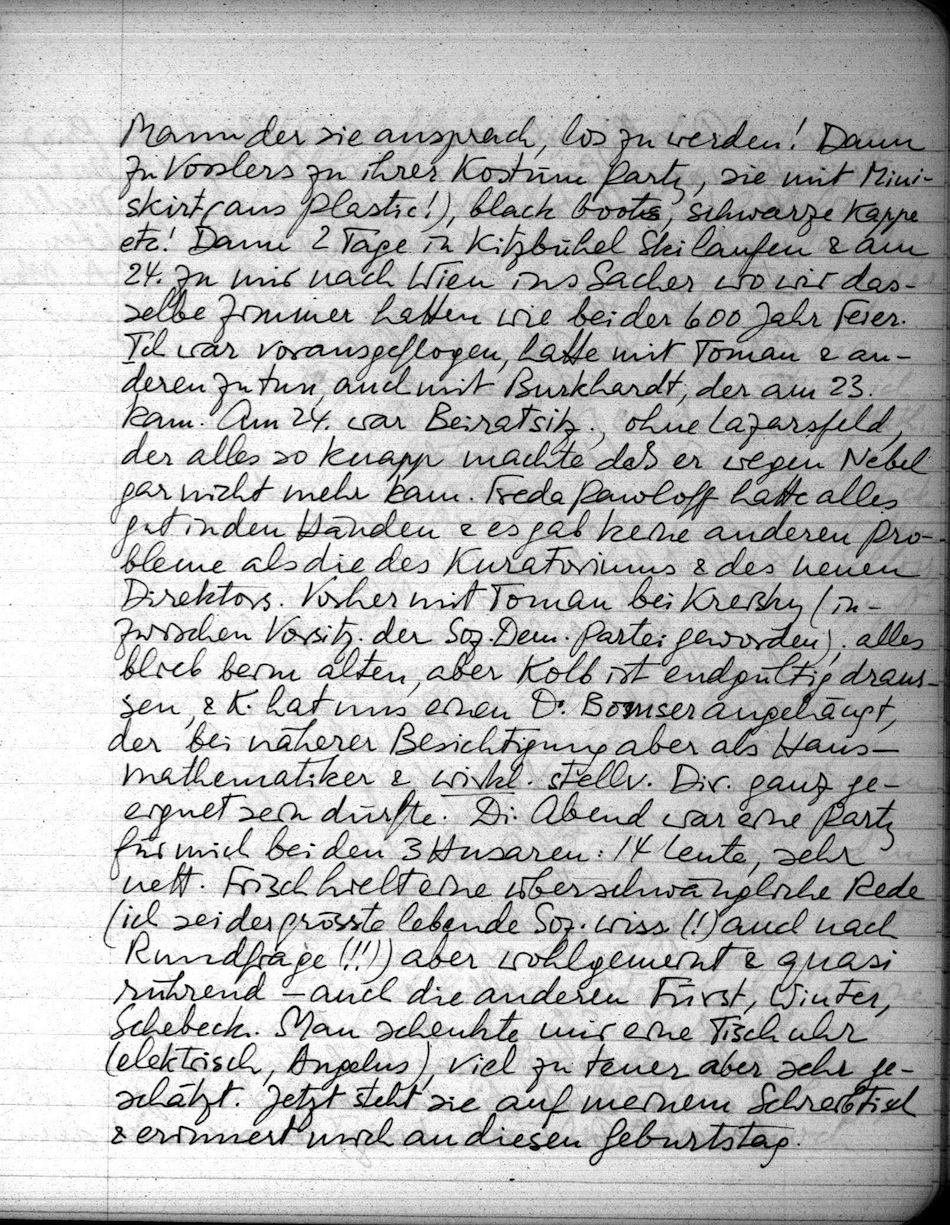 Mann der sie ansprach, los zu werden! Dann
zu Vosslers zu ihrer Kostüm Party, sie mit Mini-
skirt, (aus Plastic!), black boots, schwarze Kappe
etc! Dann 2 Tage in Kitzbühel Skilaufen & am
24. zu mir nach Wien ins Sacher wo wir das-
selbe Zimmer hatten wie bei der 600 Jahr Feier.
Ich war vorausgeflogen, hatte mit Toman & an-
deren zu tun, auch mit Burkhardt, der am 23.
kam. Am 24. war Beiratsitz., ohne Lazarsfeld,
der alles so knapp machte daß er wegen Nebel
gar nicht mehr kam. Freda Pawloff hatte alles
gut in den Händen & es gab keine anderen Pro-
bleme als die des Kuratoriums & des neuen
Direktors. Vorher mit Toman bei Kreisky (in-
zwischen Vorsitz. der Soz. Dem. Partei geworden); alles
blieb beim alten, aber Kolb ist endgültig draus-
sen, & K. hat uns einen Dr. angehängt,
der bei näherer Besichtigung aber als Haus-
mathematiker & wirkl. stellv. Dir. ganz ge-
eignet sein dürfte. Di. Abend war eine Party
für mich bei den 3 Husaren: 14 Leute, sehr
nett. Frisch hielt eine überschwängliche Rede
(ich sei der grösste lebende Soz. wiss. (!) auch nach
Rundfrage (!!)) aber wohlgemeint & quasi
rührend – auch die anderen Fürst, Winter,
Schebeck. Man schenkte mir eine Tischuhr
(elektrisch, Angelus), viel zu teuer aber sehr ge-
schätzt. Jetzt steht sie auf meinem Schreibtisch
& erinnert mich an diesen Geburtstag.